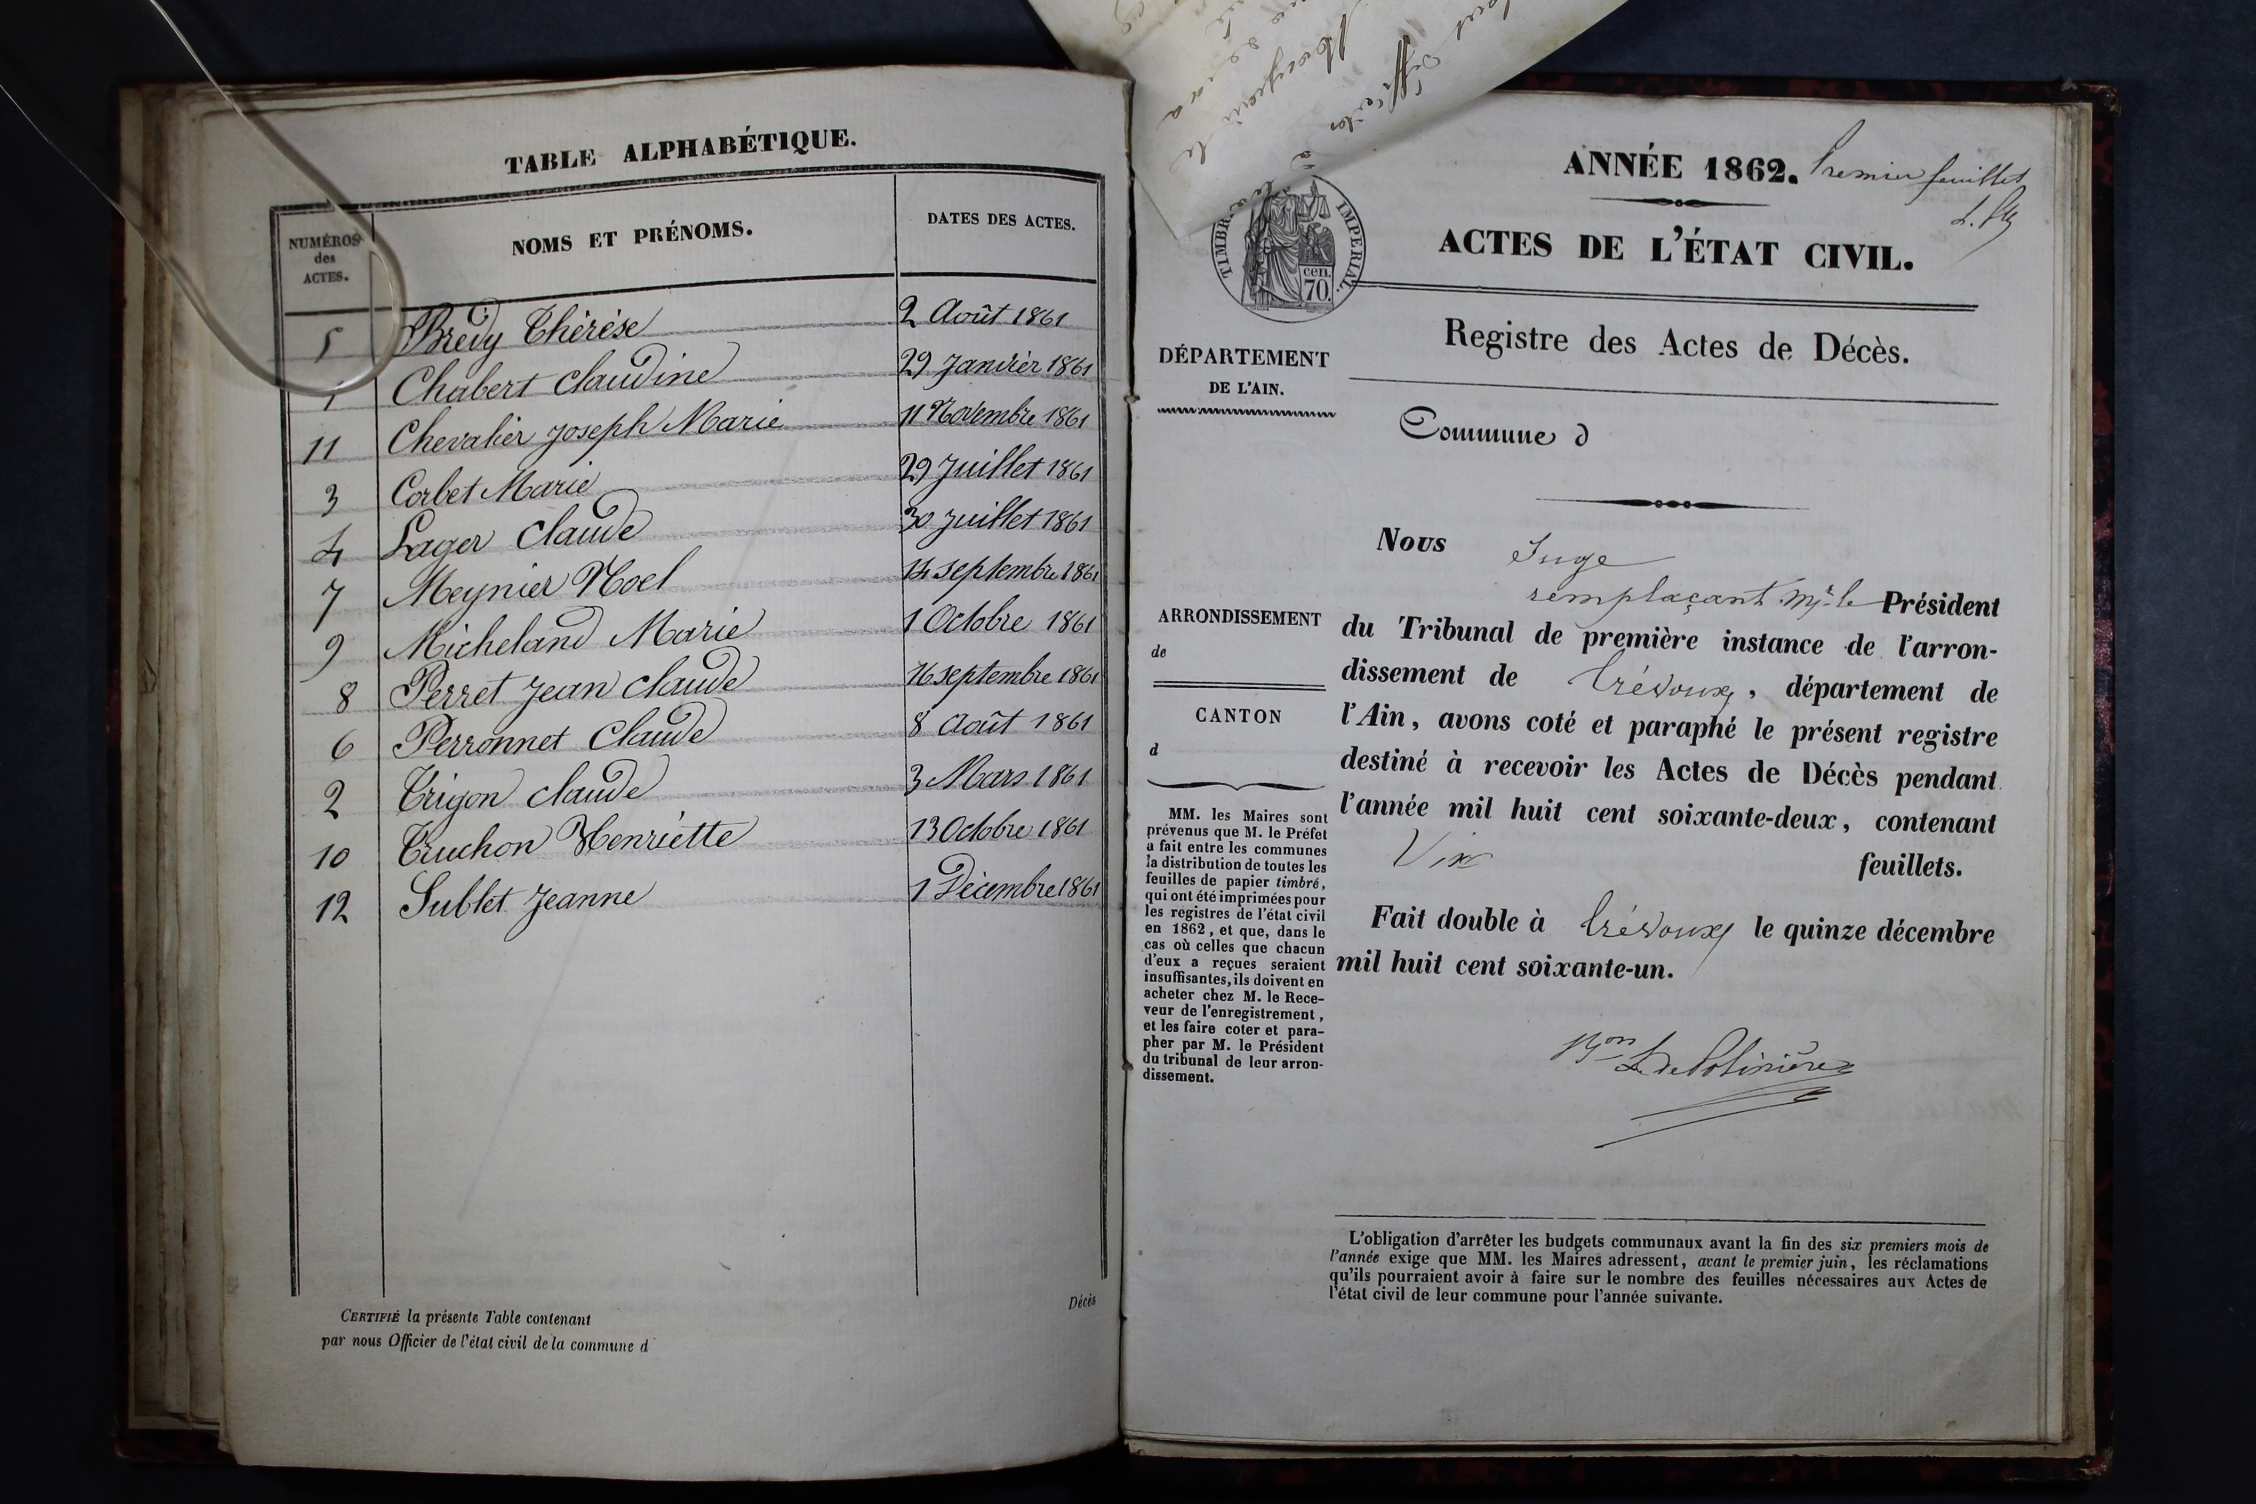 TABLE ALPHABÉTIQUE.
NUMÉROS des ACTES. NOMS ET PRÉNOMS. DATES DES ACTES.
5 Bredy Thérèse 2 Août 1861
1 Chabert Claudine 29 Janvier 1861
11 Chevalier Joseph Marie 11 Novembre 1861
3 Corbet Marie 29 Juillet 1861
4 Lager Claude 30 Juillet 1861
7 Meynier Noel 14 Septembre 1861
9 Micheland Marie 1 Octobre 1861
8 Perret Jean Claude 16 Septembre 1861
6 Perronnet Claude 8 Août 1861
2 Trigon Claude 3 Mars 1861
10 Truchon Henriette 13 Octobre 1861
12 Sublet Jeanne 1 Décembre 1861
Décès
CERTIFIÉ la présente Table contenant
par nous Officier de l'état civil de la commune d
ANNÉE 1862. Premier feuillet
ACTES DE L'ÉTAT CIVIL.
TIMBRE IMPERIAL.
cen.
70.
Registre des Actes de Décès.
DÉPARTEMENT
DE L'AIN.
Commune d
ARRONDISSEMENT
de
CANTON
d
MM. les Maires sont
prévenus que M. le Préfet
a fait entre les communes
la distribution de toutes les
feuilles de papier timbré,
qui ont été imprimées pour
les registres de l'état civil
en 1862, et que, dans le
cas où celles que chacun
d'eux a reçues seraient
insuffisantes, ils doivent en
acheter chez M. le Rece-
veur de l'enregistrement,
et les faire coter et para-
pher par M. le Président
du tribunal de leur arron-
dissement.
Nous Juge
remplaçant Mr. le Président
du Tribunal de première instance de l'arron-
dissement de Trévoux, département de
l'Ain, avons coté et paraphé le présent registre
destiné à recevoir les Actes de Décès pendant
l'année mil huit cent soixante-deux, contenant
feuillets.
Fait double à Trévoux le quinze décembre
mil huit cent soixante-un.
Bon L. de Polinière
L'obligation d'arrêter les budgets communaux avant la fin des six premiers mois de
l'année exige que MM. les Maires adressent, avant le premier juin, les réclamations
qu'ils pourraient avoir à faire sur le nombre des feuilles nécessaires aux Actes de
l'état civil de leur commune pour l'année suivante.